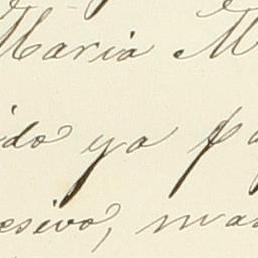 Maria M
ido ya pa
esivo, man